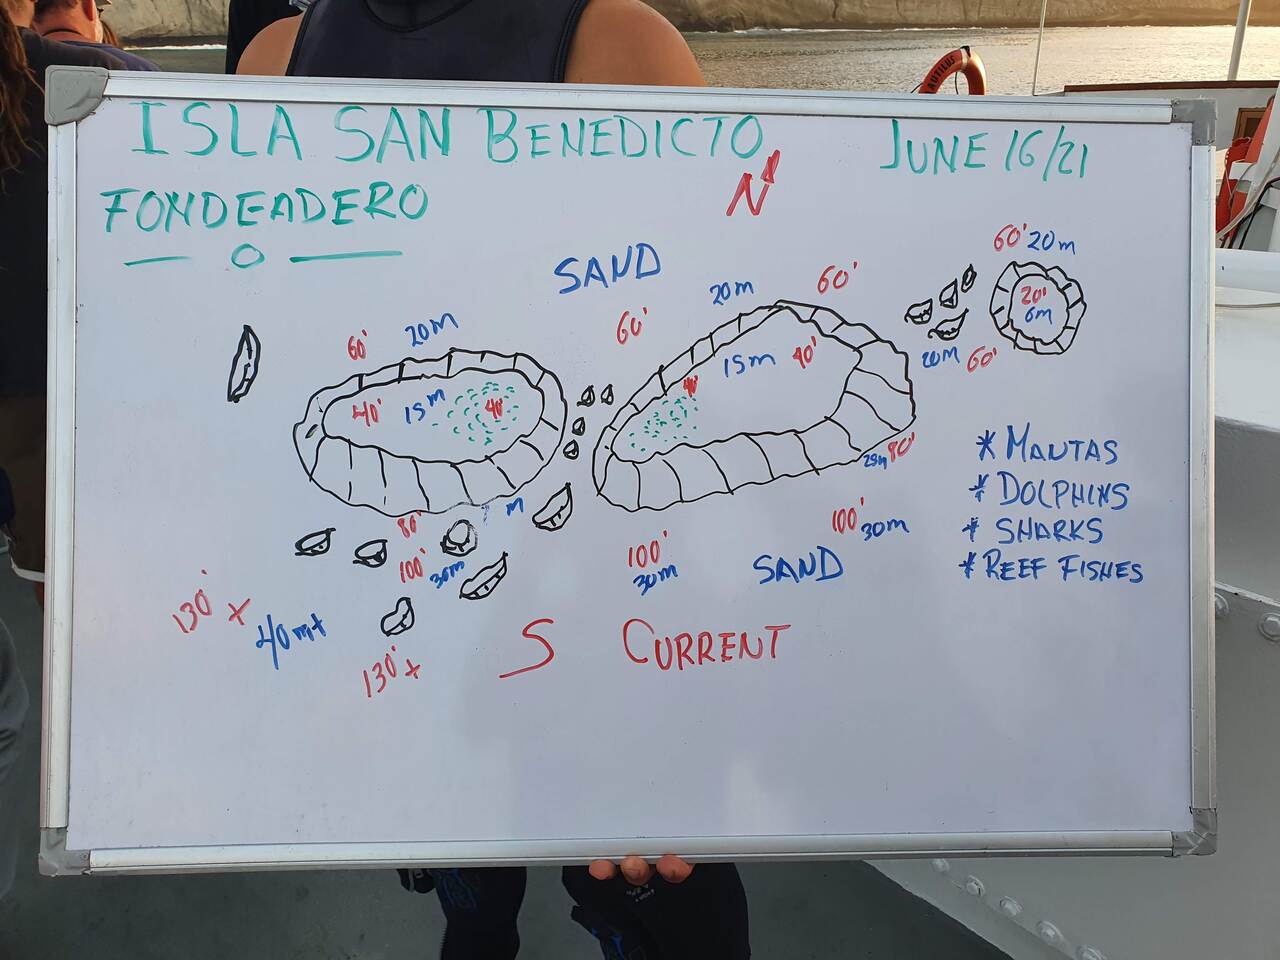 NAUTILUS
ISLA SAN BENEDICTO
JUNE 16/21
FONDEADERO
N
SAND
60' 20m
20' 6m
20m 60'
60'
60' 20m
20m 60'
40' 15m 40'
40' 15m 40'
80'
m
100' 30m
80'
100' 30m
100' 30m
SAND
* MANTAS
* DOLPHINS
* SHARKS
* REEF FISHES
130' +
40m+
130' +
S CURRENT